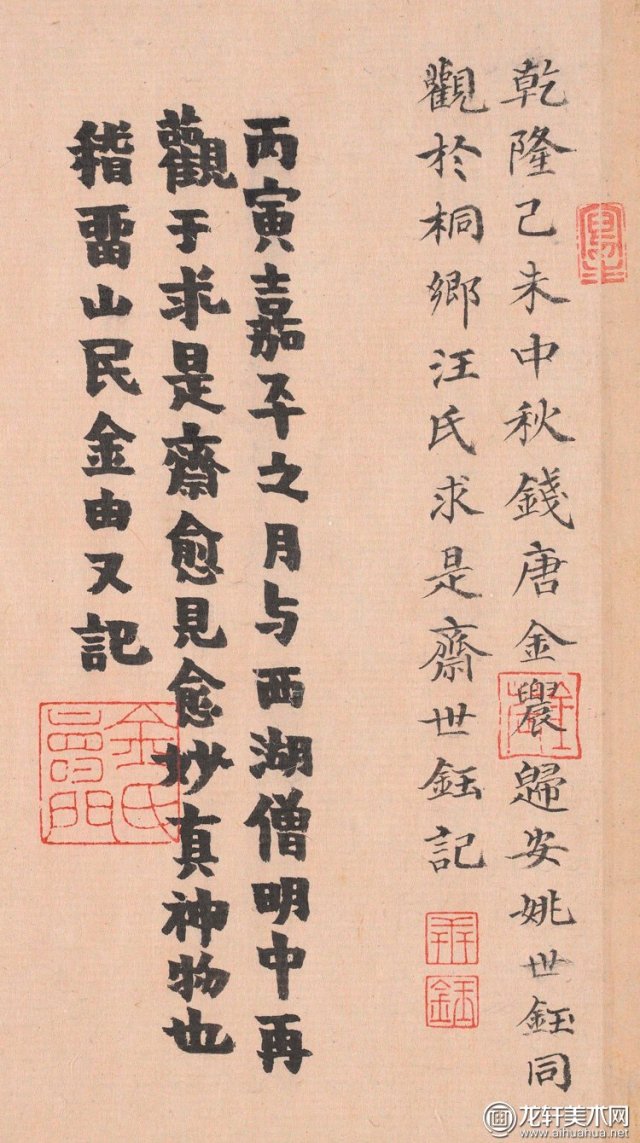 乾隆己未中秋錢唐金農歸安姚世鈺同
觀於桐鄉汪氏求是齋世鈺記
丙寅嘉平之月与西湖僧明中再
觀于求是齋愈見愈妙真神物也
稽畱山民金由又記
金氏壽門
龙轩美术网
www.aihuahua.net